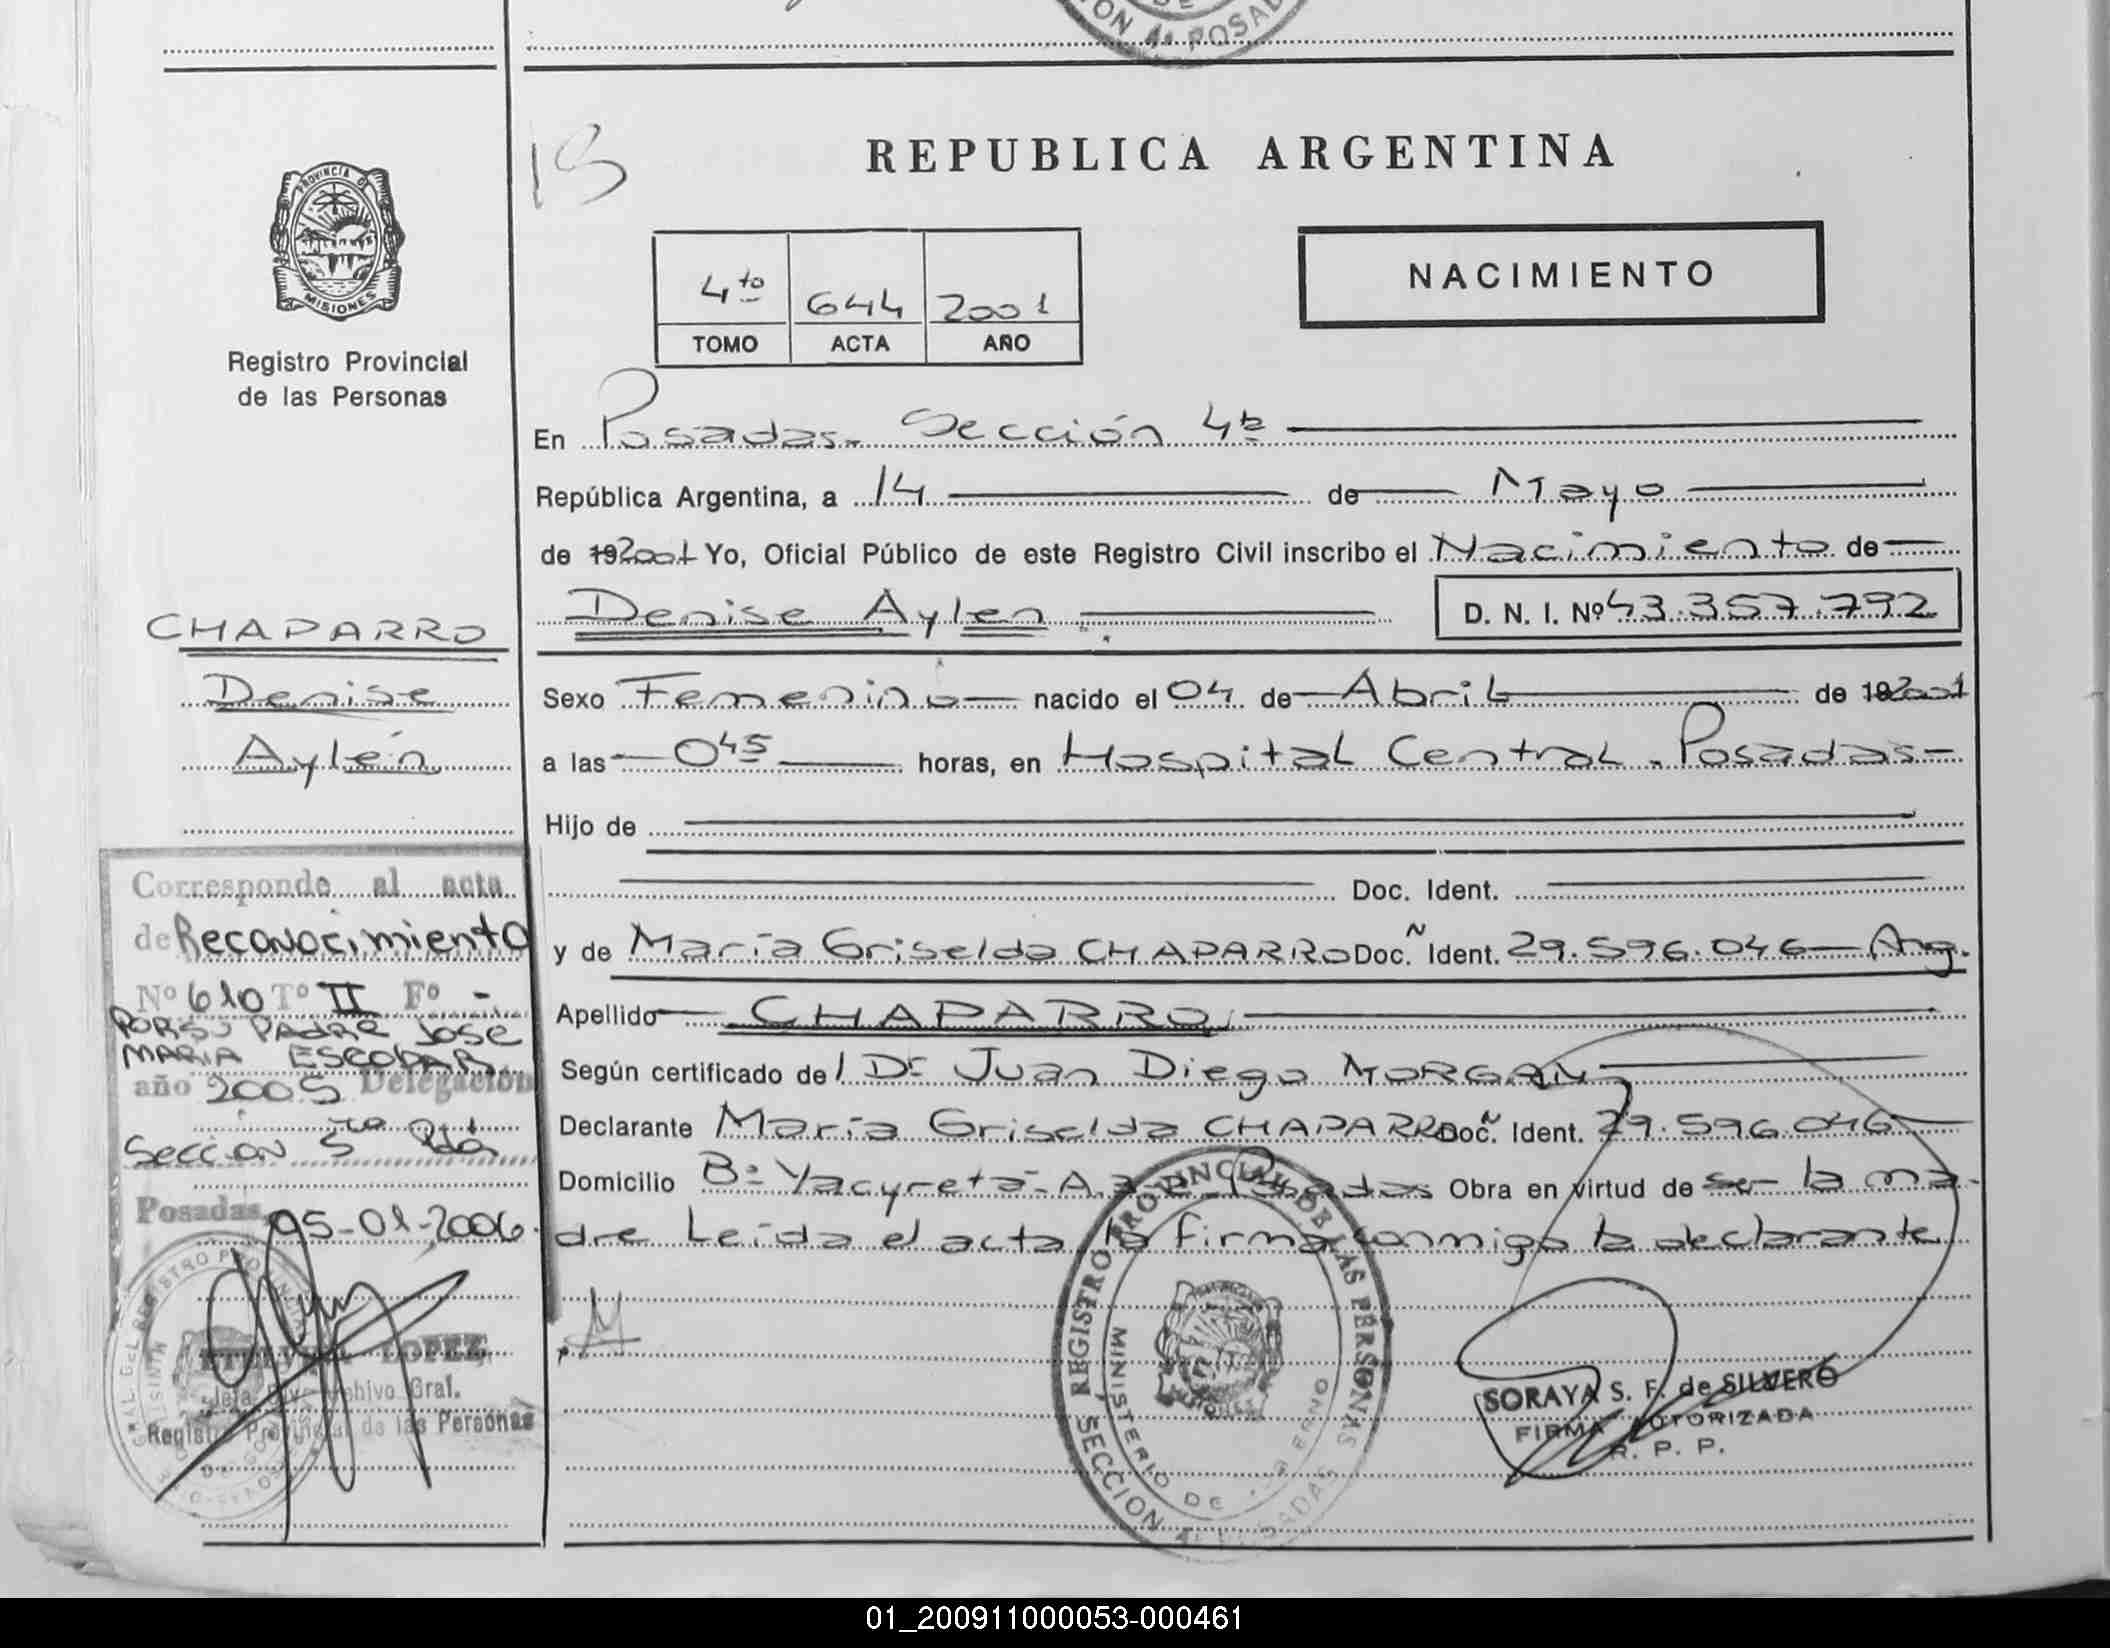 ON 4ª POSAD
PROVINCIA DE
MISIONES
Registro Provincial
de las Personas
CHAPARRO
Denise
Aylén
Corresponde al acta
de Reconocimiento
Nº 610 Tº II Fº -.
POR SU PADRE JOSE
MARIA ESCOBAR
año 2005 Delegación
Sección 5ta Pdas
Posadas, 05-01-2006.
LOPEZ
Jefa Archivo Gral.
Registro Provincial de las Personas
REPUBLICA ARGENTINA
4to 644 2001
TOMO ACTA AÑO
NACIMIENTO
En Posadas - Sección 4ª
República Argentina, a 14 de Mayo
de 192001 Yo, Oficial Público de este Registro Civil inscribo el Nacimiento de
Denise Aylen D. N. I. Nº 43.357.792
Sexo Femenino nacido el 04 de Abril de 192001
a las 0 45 horas, en Hospital Central - Posadas
Hijo de
Doc. Ident.
y de María Griselda CHAPARRO Doc. N Ident. 29.596.046 - Arg.
Apellido CHAPARRO
Según certificado del Dr Juan Diego MORGAN
Declarante María Griselda CHAPARRO Doc. N Ident. 29.596.046
Domicilio Bº Yacyretá - A. Posadas Obra en virtud de ser la ma-
dre Leída el acta, la firma conmigo la declarante
REGISTRO PROVINCIAL DE LAS PERSONAS
MINISTERIO DE GOBIERNO
SECCION 4ª POSADAS
SORAYA S. F. de SILVERO
FIRMA AUTORIZADA
R. P. P.
01_200911000053-000461